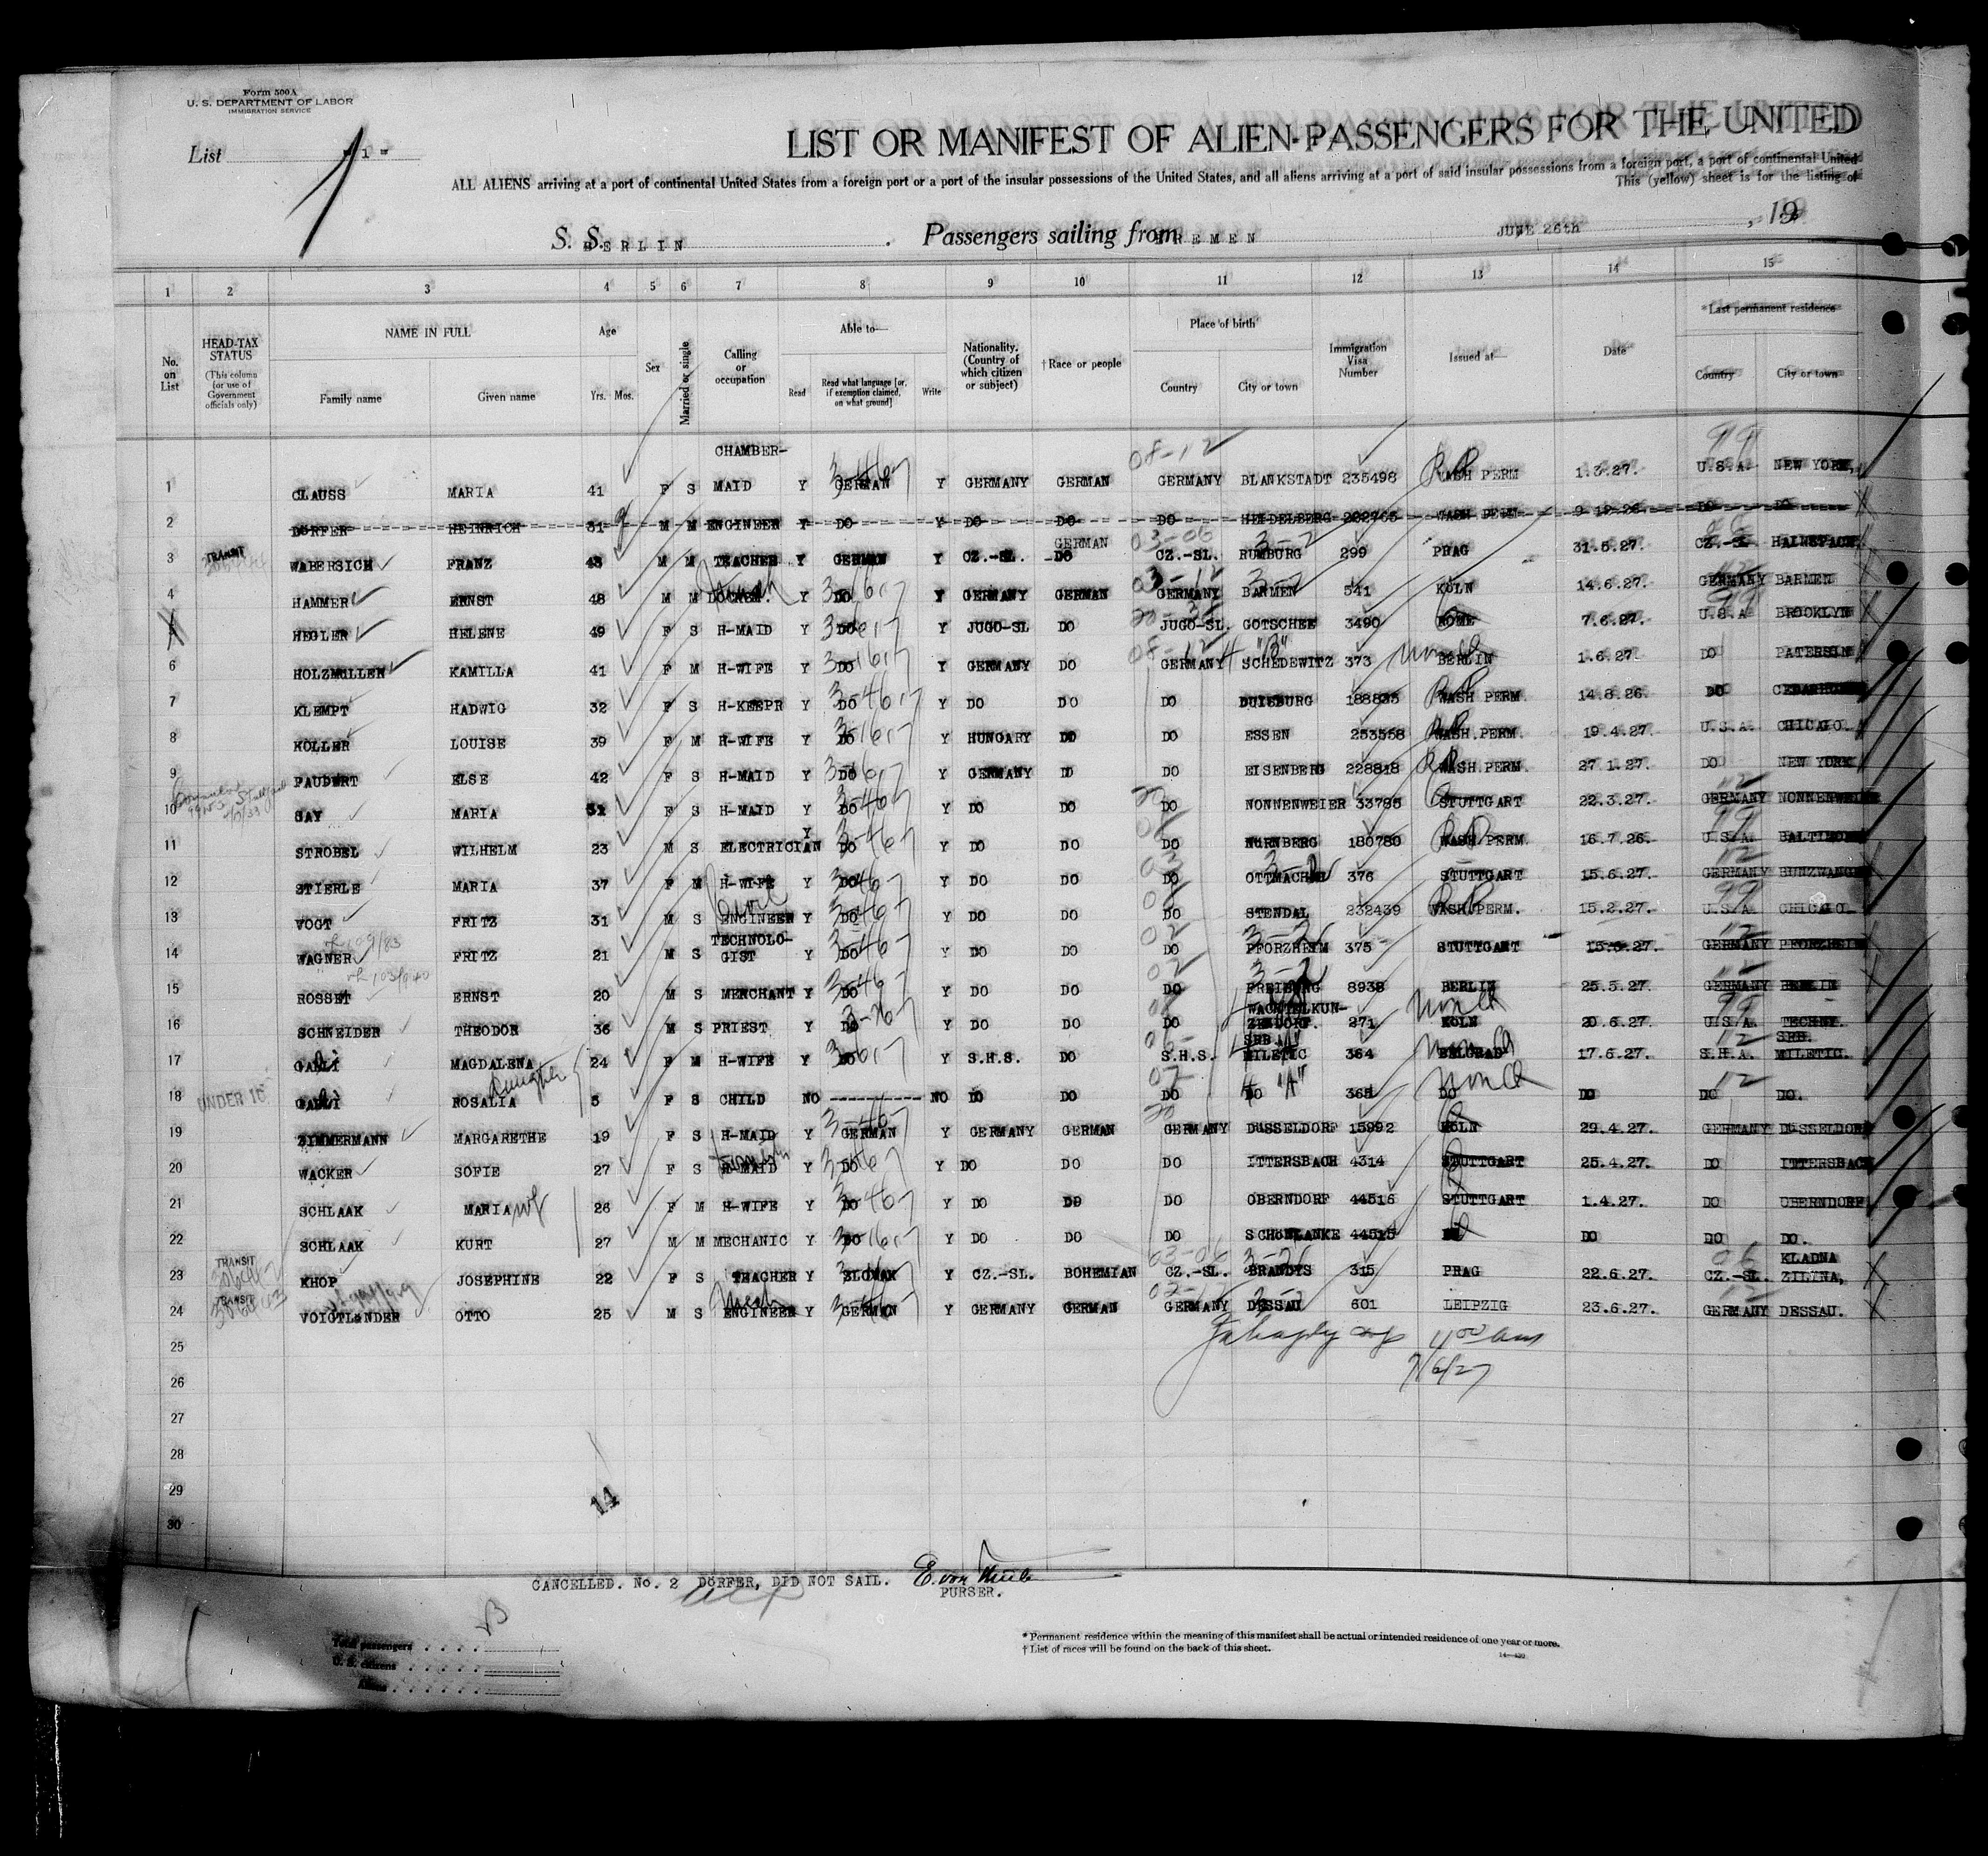 Form 500A
U. S. DEPARTMENT OF LABOR
IMMIGRATION SERVICE
List " 1 "
1
LIST OR MANIFEST OF ALIEN PASSENGERS FOR THE UNITED
ALL ALIENS arriving at a port of continental United States from a foreign port or a port of the insular possessions of the United States, and all aliens arriving at a port of said insular possessions from a foreign port, a port of continental United
This (yellow) sheet is for the listing of
S. S. BERLIN . Passengers sailing from BREMEN JUNE 26th , 19
1 2 3 4 5 6 7 8 9 10 11 12 13 14 15
No. on List
HEAD-TAX STATUS (This column for use of Government officials only)
NAME IN FULL Family name Given name
Age Yrs. Mos.
Sex
Married or single
Calling or occupation
Able to— Read Read what language [or, if exemption claimed, on what ground] Write
Nationality. (Country of which citizen or subject)
†Race or people
Place of birth Country City or town
Immigration Visa Number
Issued at—
Date
*Last permanent residence Country City or town
1 CLAUSS MARIA 41 F S CHAMBER-MAID Y GERMAN Y GERMANY GERMAN GERMANY BLANKSTADT 235498 WASH PERM 1.3.27. U.S.A. NEW YORK,
2 DÖRFER HEINRICH 31 M M ENGINEER Y DO Y DO DO DO HEIDELBERG WASH PERM DO DO
3 TRANSIT WABERSICH FRANZ 43 M M TEACHER Y GERMAN Y CZ.-SL. GERMAN DO CZ.-SL. RUMBURG 299 PRAG 31.5.27. CZ.-SL. HAINSPACH
4 HAMMER ERNST 48 M M Y DO Y GERMANY GERMAN GERMANY BARMEN 541 KÖLN 14.6.27. GERMANY BARMEN
5 HEGLER HELENE 49 F S H-MAID Y DO Y JUGO-SL DO JUGO-SL. GOTSCHEE 3490 ROME 7.6.27. U.S.A BROOKLYN
6 HOLZMÜLLER KAMILLA 41 F M H-WIFE Y DO Y GERMANY DO GERMANY SCHEDEWITZ 373 BERLIN 1.6.27. DO PATERSON
7 KLEMPT HADWIG 32 F S H-KEEPR Y DO Y DO DO DO DUISBURG 188835 WASH PERM. 14.8.26. DO
8 KOLLER LOUISE 39 F M H-WIFE Y DO Y HUNGARY DO DO ESSEN 253558 WASH.PERM. 19.4.27. U.S.A. CHICAGO.
9 PAUDERT ELSE 42 F S H-MAID Y DO Y GERMANY D DO EISENBERG 228818 WASH.PERM. 27.1.27. DO NEW YORK
10 SAY MARIA 31 F S H-MAID Y DO Y DO DO DO NONNENWEIER 33795 STUTTGART 22.3.27. GERMANY NONNENWEIER
11 STROBEL WILHELM 23 M S ELECTRICIAN Y DO Y DO DO DO NÜRNBERG 180780 WASH PERM. 16.7.26. U.S.A. BALTIMORE
12 STIERLE MARIA 37 F M H-WIFE Y DO Y DO DO DO 376 STUTTGART 15.6.27. GERMANY BUNZWANGEN
13 VOGT FRITZ 31 M S Civil ENGINEER Y DO Y DO DO DO STENDAL 232439 WASH.PERM. 15.2.27. U.S.A. CHICAGO.
14 WAGNER FRITZ 21 M S TECHNOLO-GIST Y DO Y DO DO DO PFORZHEIM 375 STUTTGART 15.6.27. GERMANY PFORZHEIM
15 ROSSET ERNST 20 M S MERCHANT Y DO Y DO DO DO FREIBURG 8938 BERLIN 25.5.27. GERMANY BERLIN
16 SCHNEIDER THEODOR 36 M S PRIEST Y DO Y DO DO DO 271 KÖLN 20.6.27. U.S.A. TECHNY.
17 MAGDALENA 24 F M H-WIFE Y DO Y S.H.S. DO S.H.S. SRB. MILETIC 364 BELGRAD 17.6.27. S.H.A. SRB. MILETIC.
18 UNDER 16 ROSALIA daughter 3 F S CHILD NO --------- NO DO DO DO DO 365 DO DO DO DO.
19 ZIMMERMANN MARGARETHE 19 F S H-MAID Y GERMAN Y GERMANY GERMAN GERMANY DÜSSELDORF 15992 KÖLN 29.4.27. GERMANY DÜSSELDORF
20 WACKER SOFIE 27 F S H-MAID Y DO Y DO DO DO ITTERSBACH 4314 STUTTGART 25.4.27. DO ITTERSBACH
21 SCHLAAK MARIA wf 26 F M H-WIFE Y DO Y DO DO DO OBERNDORF 44516 STUTTGART 1.4.27. DO OBERNDORF
22 SCHLAAK KURT 27 M M MECHANIC Y DO Y DO DO DO SCHÖNLANKE 44515 DO DO DO.
23 TRANSIT KHOP JOSEPHINE 22 F S TEACHER Y SLOWAK Y CZ.-SL. BOHEMIAN CZ.-SL. BRANDYS 315 PRAG 22.6.27. CZ.-SL. KLADNA ZILINA,
24 TRANSIT VOIGTLÄNDER OTTO 25 M S Mech ENGINEER Y GERMAN Y GERMANY GERMAN GERMANY DESSAU 601 LEIPZIG 23.6.27. GERMANY DESSAU.
25
7/6/27
26
27
28
29
14
30
CANCELLED. No. 2 DÖRFER, DID NOT SAIL.
PURSER.
Total passengers
U. S. citizens
Aliens
* Permanent residence within the meaning of this manifest shall be actual or intended residence of one year or more.
† List of races will be found on the back of this sheet.